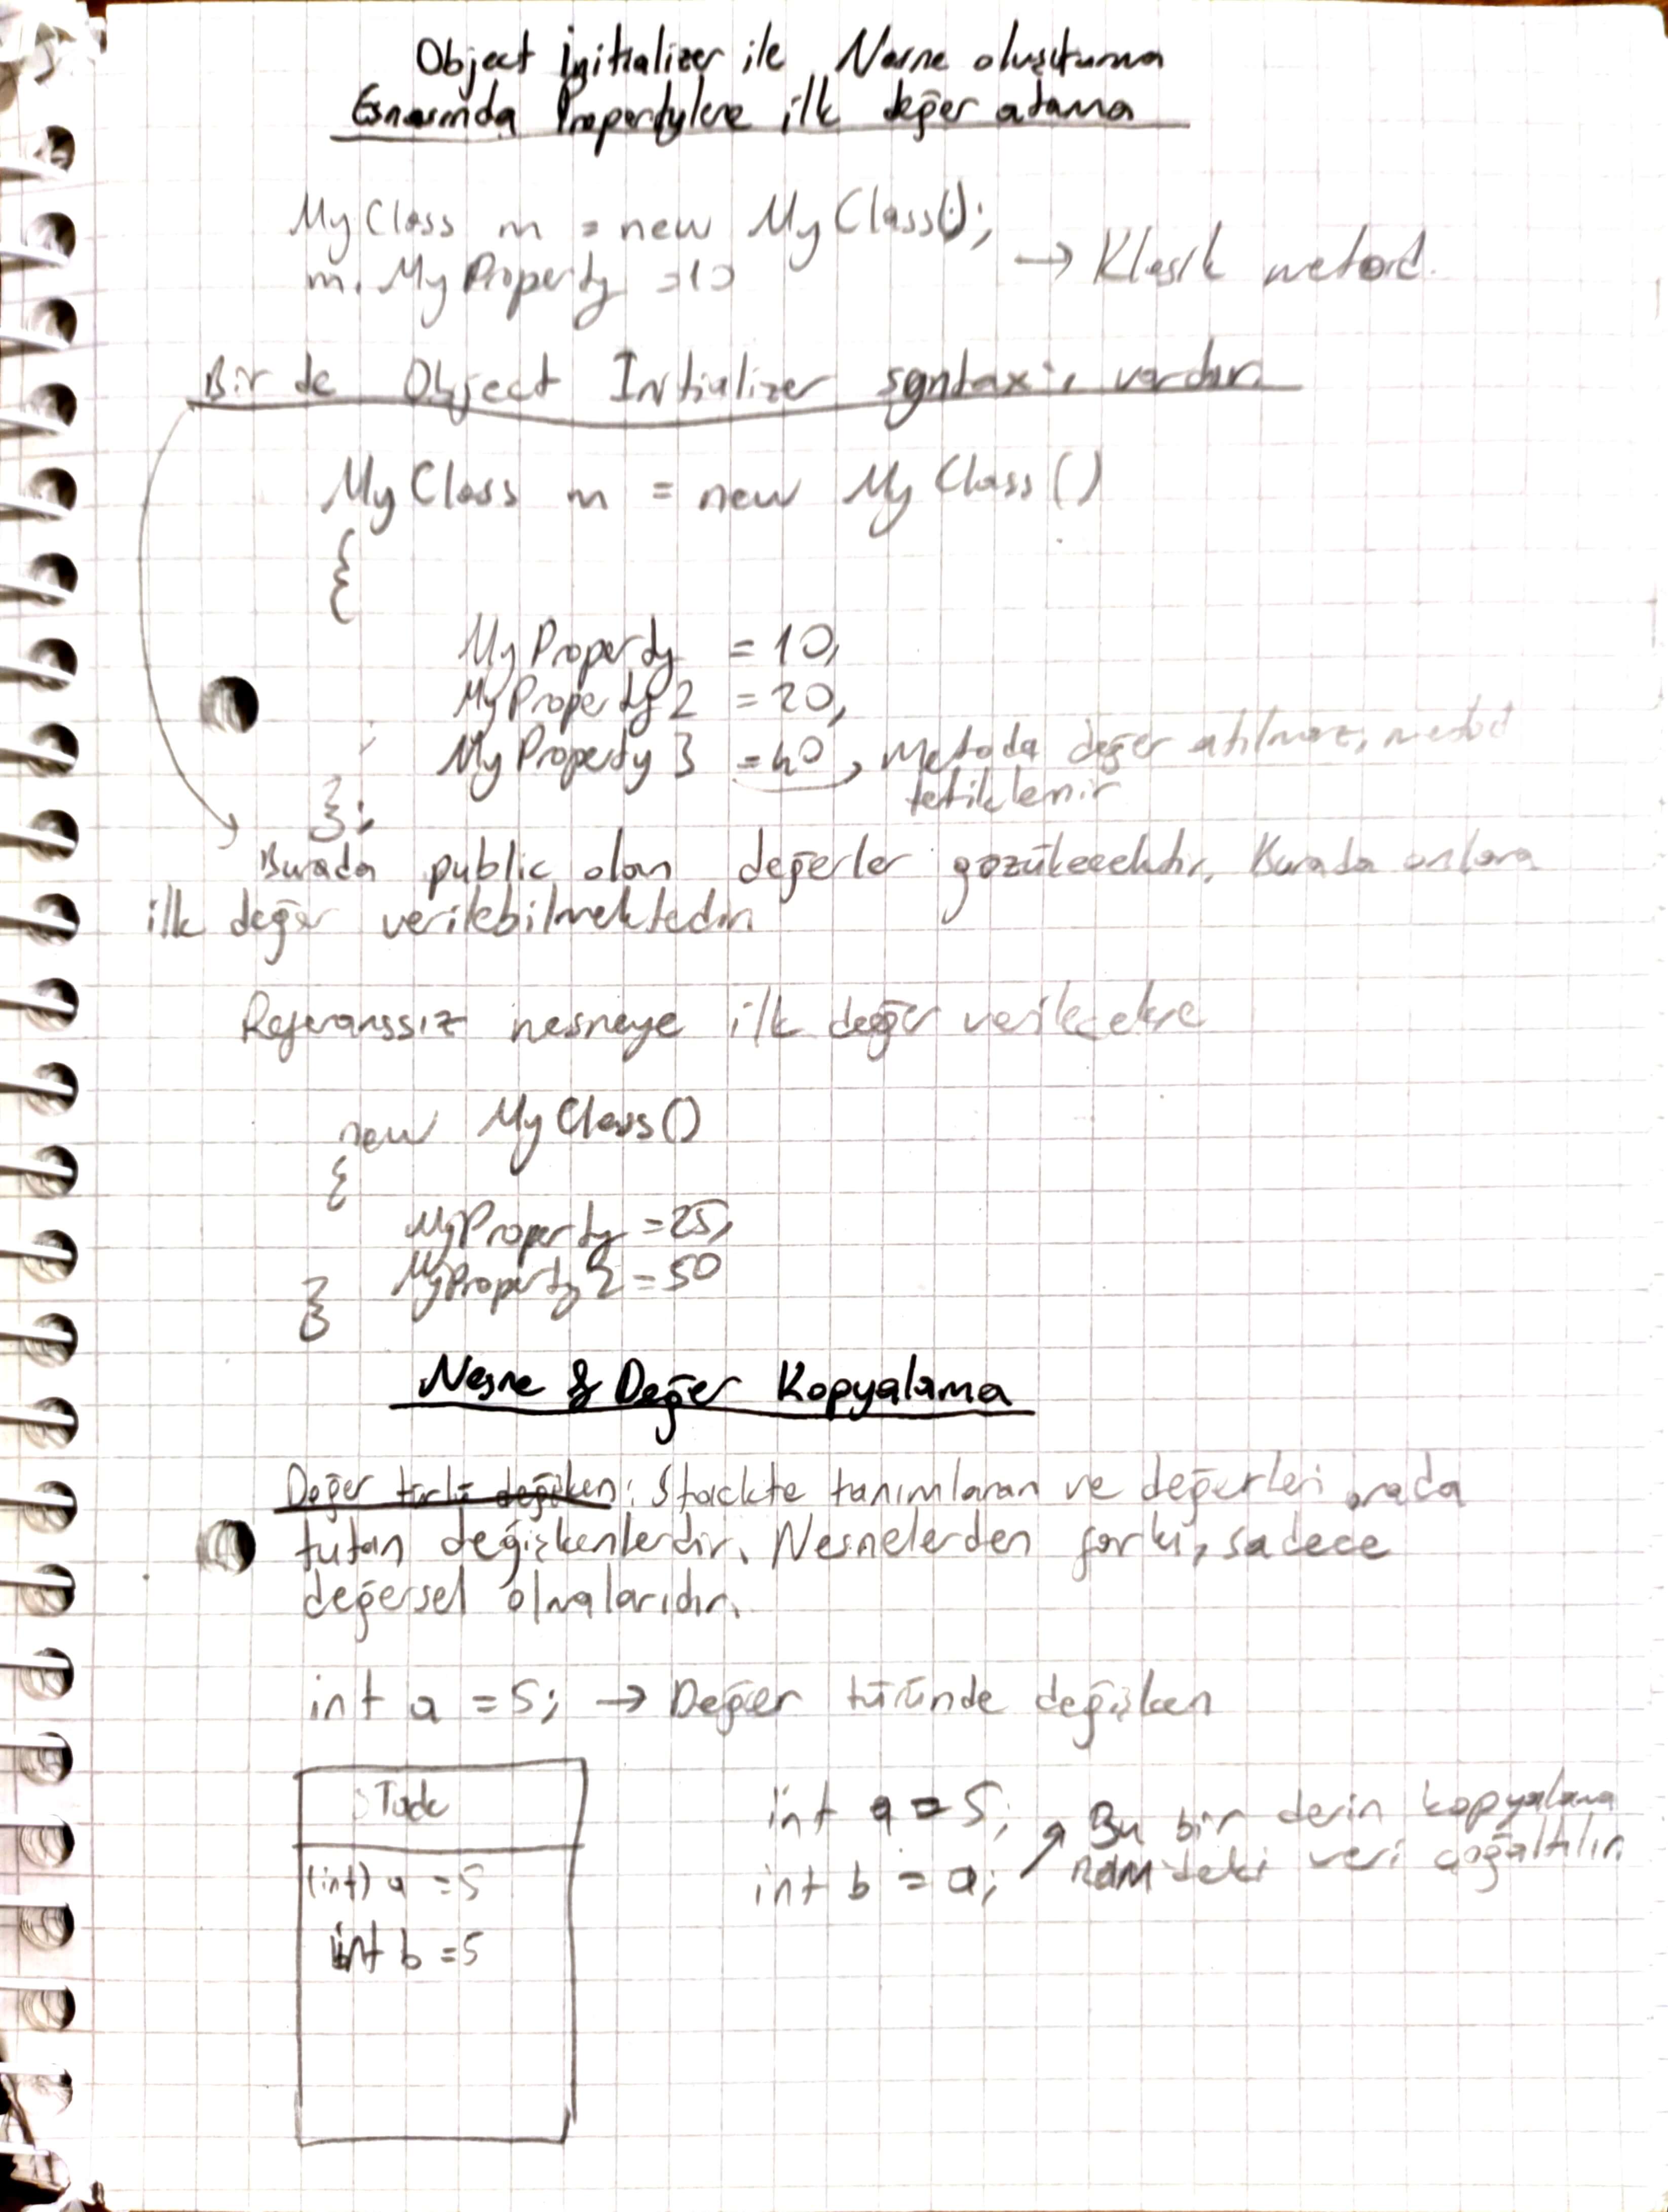 Object İnitializer ile Nesne oluşturma
Esnasında Propertylere ilk değer atama
MyClass m = new MyClass();
m.MyProperty = 10
→ Klasik metod.
Bir de Object Initializer syntax'ı vardır.
MyClass m = new MyClass()
{
MyProperty = 10,
MyProperty2 = 20,
MyProperty3 = 40, Metoda değer atılmaz, metod
tetiklenir
};
Burada public olan değerler gözükecektir. Burada onlara
ilk değer verilebilmektedir.
Referanssız nesneye ilk değer verilecekse
new MyClass()
{
MyProperty = 25,
MyProperty2 = 50
}
Nesne & Değer Kopyalama
Değer türlü değişken: Stackte tanımlanan ve değerleri orada
tutan değişkenlerdir. Nesnelerden farkı, sadece
değersel olmalarıdır.
int a = 5; → Değer türünde değişken
Stack
(int) a = 5
int b = 5
int a = 5;
int b = a;
→ Bu bir derin kopyalama
RAM'deki veri çoğaltılır.